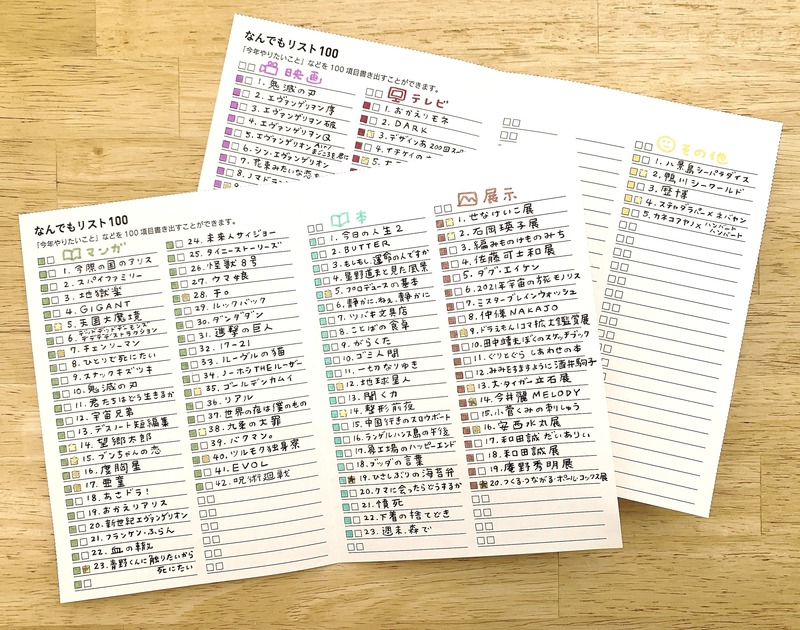 なんでもリスト100
「今年やりたいこと」などを100項目書き出すことができます。
映画
1. 鬼滅の刃
2. エヴァンゲリヲン序
3. エヴァンゲリヲン破
4. エヴァンゲリヲンQ
5. エヴァンゲリオン Air/まごころを、君に
6. シン・エヴァンゲリオン
7. 花束みたいな恋を
8. リマドラ
テレビ
1. おかえりモネ
2. DARK
3. デザインあ 200回スペ
4. イチケイの
5.
その他
1. 八景島シーパラダイス
2. 鴨川シーワールド
3. 歴博
4. スチャダラパー×ネバヤン
5. カネコアヤノ×ハンバートハンバート
なんでもリスト100
「今年やりたいこと」などを100項目書き出すことができます。
マンガ
1. 今際の国のアリス
2. スパイファミリー
3. 地獄楽
4. GIGANT
5. 天国大魔境
6. デッドデッドデーモンズデデデデデストラクション
7. チェンソーマン
8. ひとりで死にたい
9. スナックキズツキ
10. 鬼滅の刃
11. 君たちはどう生きるか
12. 宇宙兄弟
13. デスノート短編集
14. 望郷太郎
15. ブンちゃんの恋
16. 度胸星
17. 亜童
18. あさドラ!
19. おかえりアリス
20. 新世紀エヴァンゲリオン
21. フランケン・ふらん
22. 血の轍
23. 青野くんに触りたいから死にたい
24. 未来人サイジョー
25. タイニーストーリーズ
26. 怪獣8号
27. ウマ娘
28. チ。
29. ルックバック
30. ダンダダン
31. 進撃の巨人
32. 17-21
33. ルーヴルの猫
34. ノーホシTHEルーザー
35. ゴールデンカムイ
36. リアル
37. 世界の夜は僕のもの
38. 九条の大罪
39. バクマン。
40. ツルモク独身寮
41. EVOL
42. 呪術廻戦
本
1. 今日の人生2
2. BUTTER
3. もしもし、運命の人ですか
4. 星野道夫と見た風景
5. プロデュースの基本
6. 静かに、ねぇ、静かに
7. ツバメ文具店
8. ことばの食卓
9. がらくた
10. ゴミ人間
11. 一切なりゆき
12. 地球星人
13. 聞く力
14. 整形前夜
15. 中国行きのスロウボート
16. ランゲルハンス島の午後
17. 易工場のハッピーエンド
18. ブッダの言葉
19. ひさしぶりの海苔弁
20. クマに会ったらどうするか
21. 憤死
22. 下着の捨てどき
23. 週末、森で
展示
1. せなけいこ展
2. 石岡瑛子展
3. 編みものけものみち
4. 佐藤可士和展
5. ダグ・エイケン
6. 2021年宇宙の旅 モノリス
7. ミスターブレインウォッシュ
8. 仲條 NAKAJO
9. ドラえもん1コマ拡大鑑賞展
10. 田中靖夫 ぼくのスケッチブック
11. ぐりとぐら しあわせの本
12. みみをすますように 酒井駒子
13. 大・タイガー立石展
14. 今井麗 MELODY
15. 小菅くみの刺しゅう
16. 安西水丸展
17. 和田誠 だいありぃ
18. 和田誠展
19. 庵野秀明展
20. つくる・つながる・ポール・コックス展